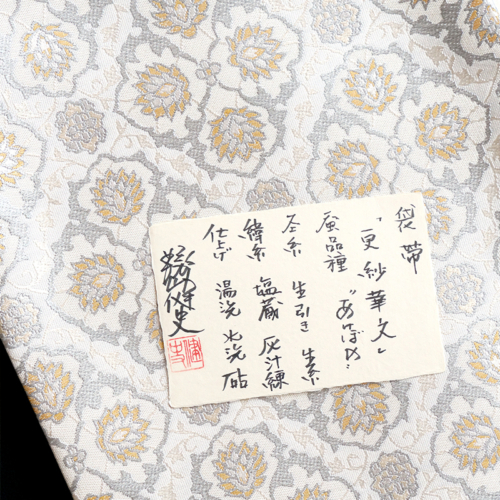 袋帯
「更紗華文」
蚕品種 "あけぼの"
経糸 生引き 生糸
緯糸 塩蔵 灰汁練
仕上げ 湯洗 水洗 砧